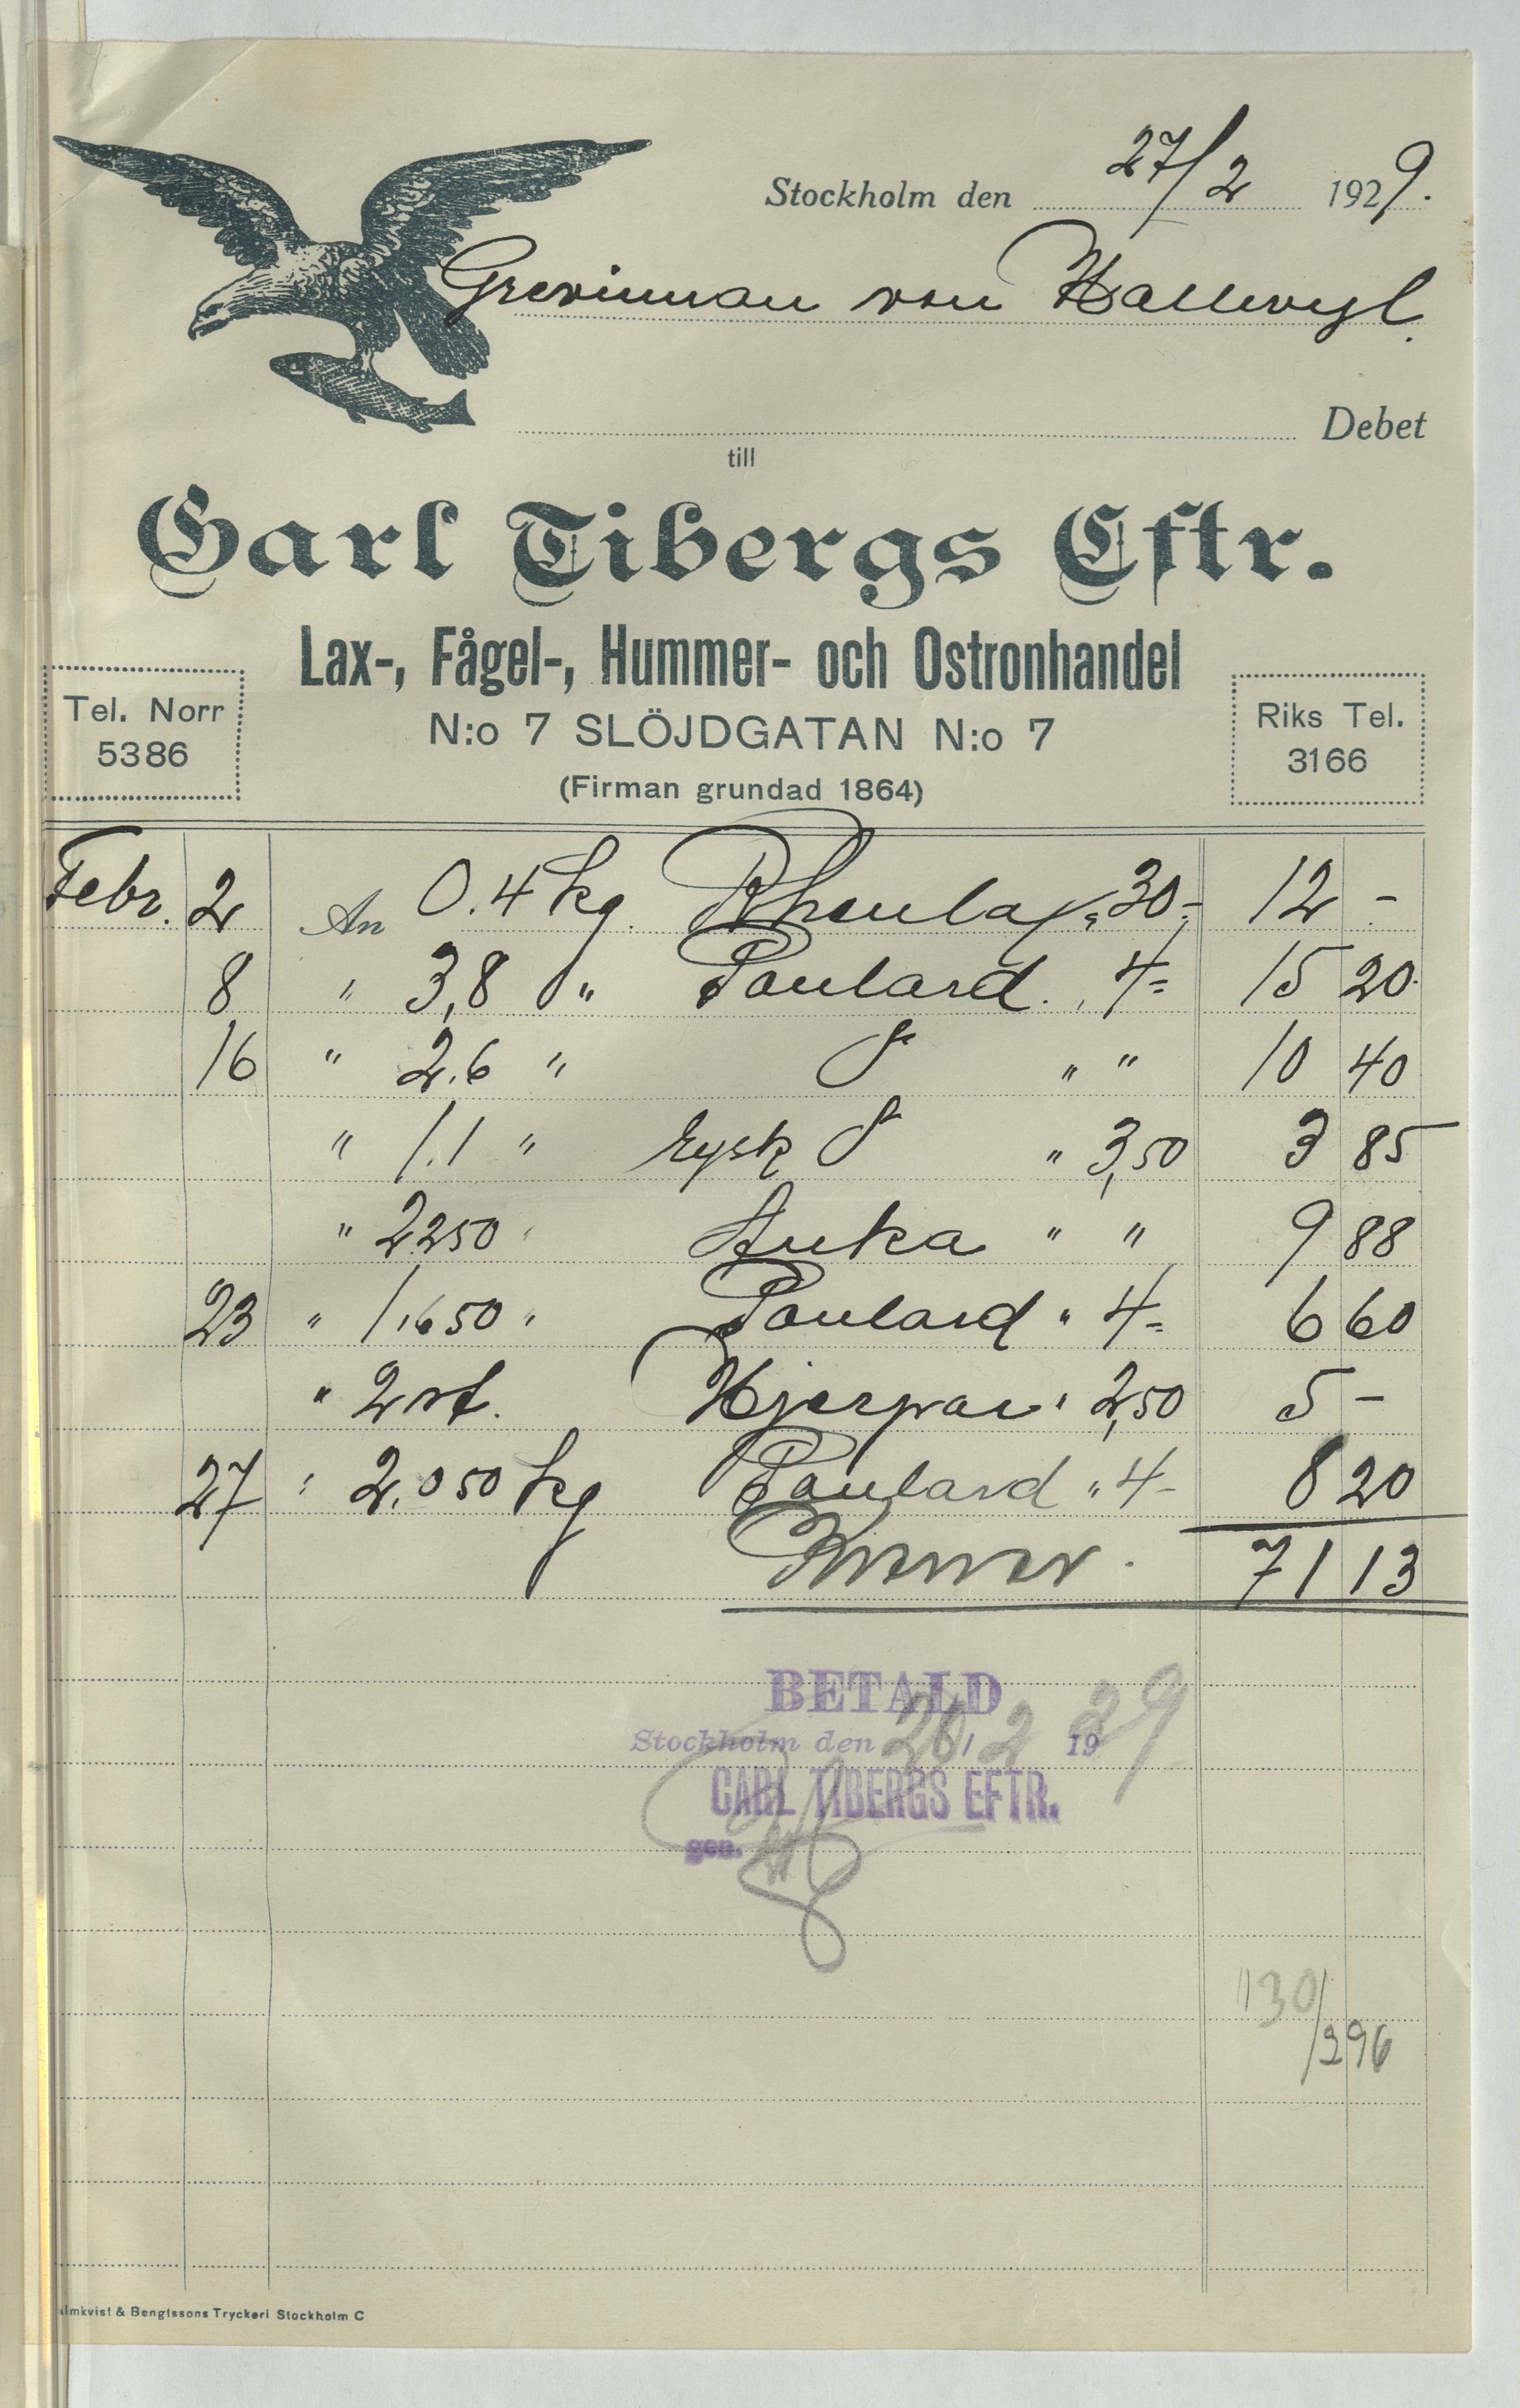 Stockholm den 27/2 1929.
Grevinnan von Hallwyl.
Debet
till
Carl Tibergs Eftr.
Lax-, Fågel-, Hummer- och Ostronhandel
Tel. Norr
5386
N:o 7 SLÖJDGATAN N:o 7
Riks Tel.
3166
(Firman grundad 1864)
Febr. 2 An 0.4 kg. Rhenlax " 30- 12 -
8 " 3,8 " Poulard " 4= 15 20
16 " 2.6 " " " 10 40
" 1.1 " rysk " 3,50 3 85
" 2.250 " Anka " " 9 88
23 " 1.650 " Poulard " 4= 6 60
" 2 st. Hjerpar " 2,50 5 -
27 " 2.050 kg Poulard " 4- 8 20
Kronor. 71 13
BETALD
Stockholm den 28/2 1929
CARL TIBERGS EFTR.
gen.
130/296
lmkvist & Bengtssons Tryckeri Stockholm C